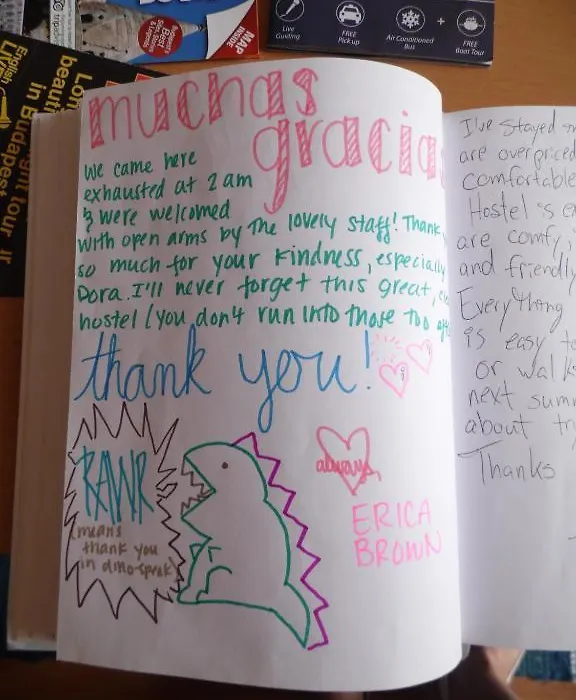 MAP
INSIDE
Live
Guiding
FREE
Pick up
Air Conditioned
Bus
+
FREE
Boat Tour
English
in Budapest
muchas
gracias
we came here
exhausted at 2 am
& were welcomed
with open arms by the lovely staff! Thank
so much for your kindness, especially
Dora. I'll never forget this great,
hostel (you don't run into those too
thank you!
RAWR
means
thank you
in dino-speak
always,
ERICA
BROWN
I've stayed
are overpriced
comfortable
Hostel
are comfy,
and friendly
Everything
is easy
or walk
next summ
about
Thanks